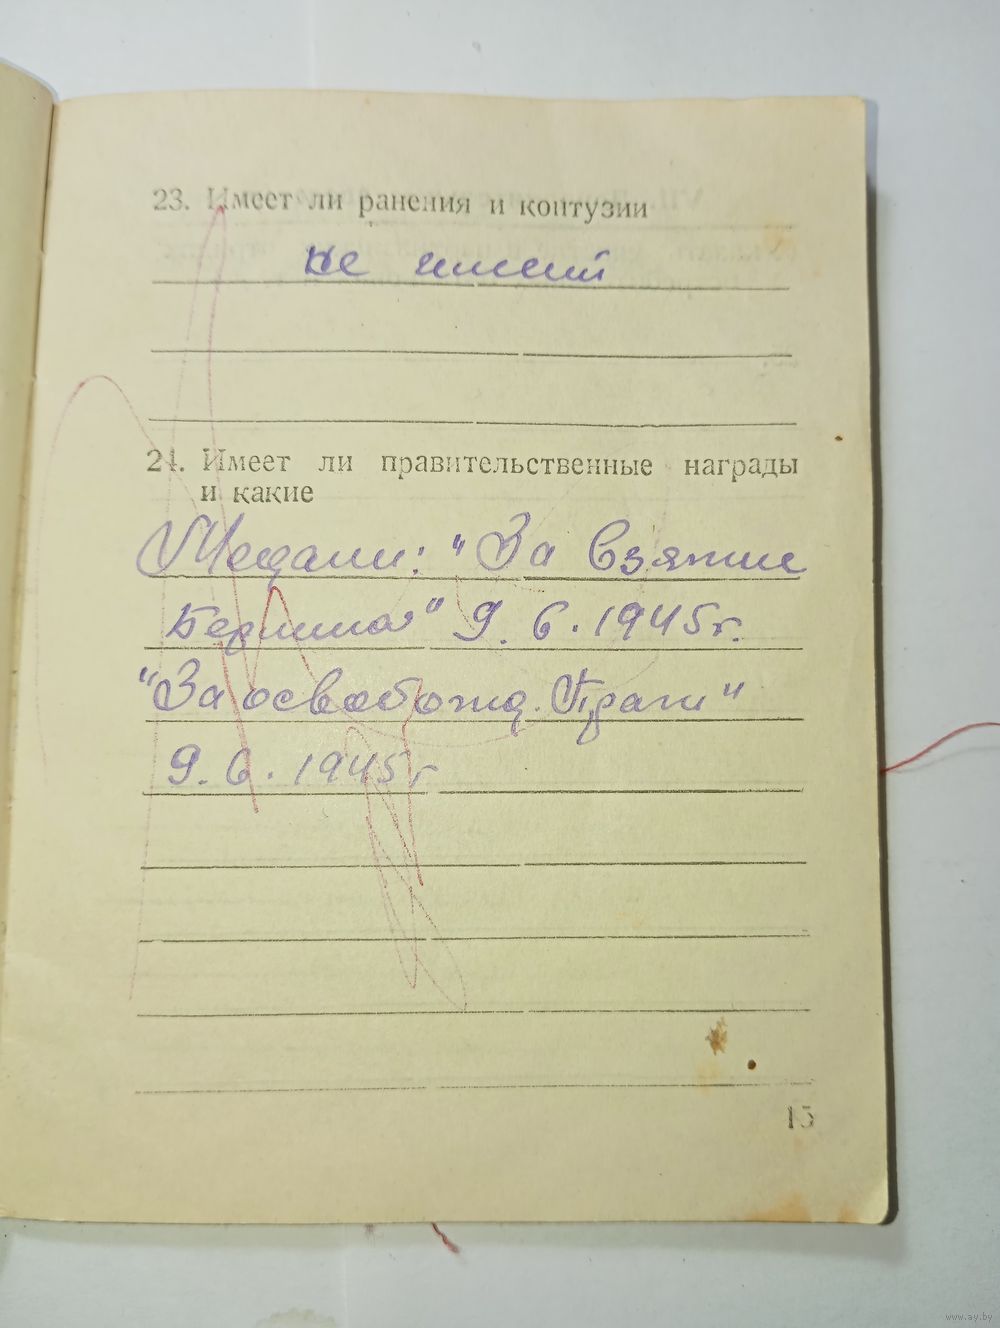 23. Имеет ли ранения и контузии
не имеет
24. Имеет ли правительственные награды
и какие
Медали: "За взятие
Берлина" 9.6.1945г.
"За освобожд. Праги"
9.6.1945г
15
www.ay.by